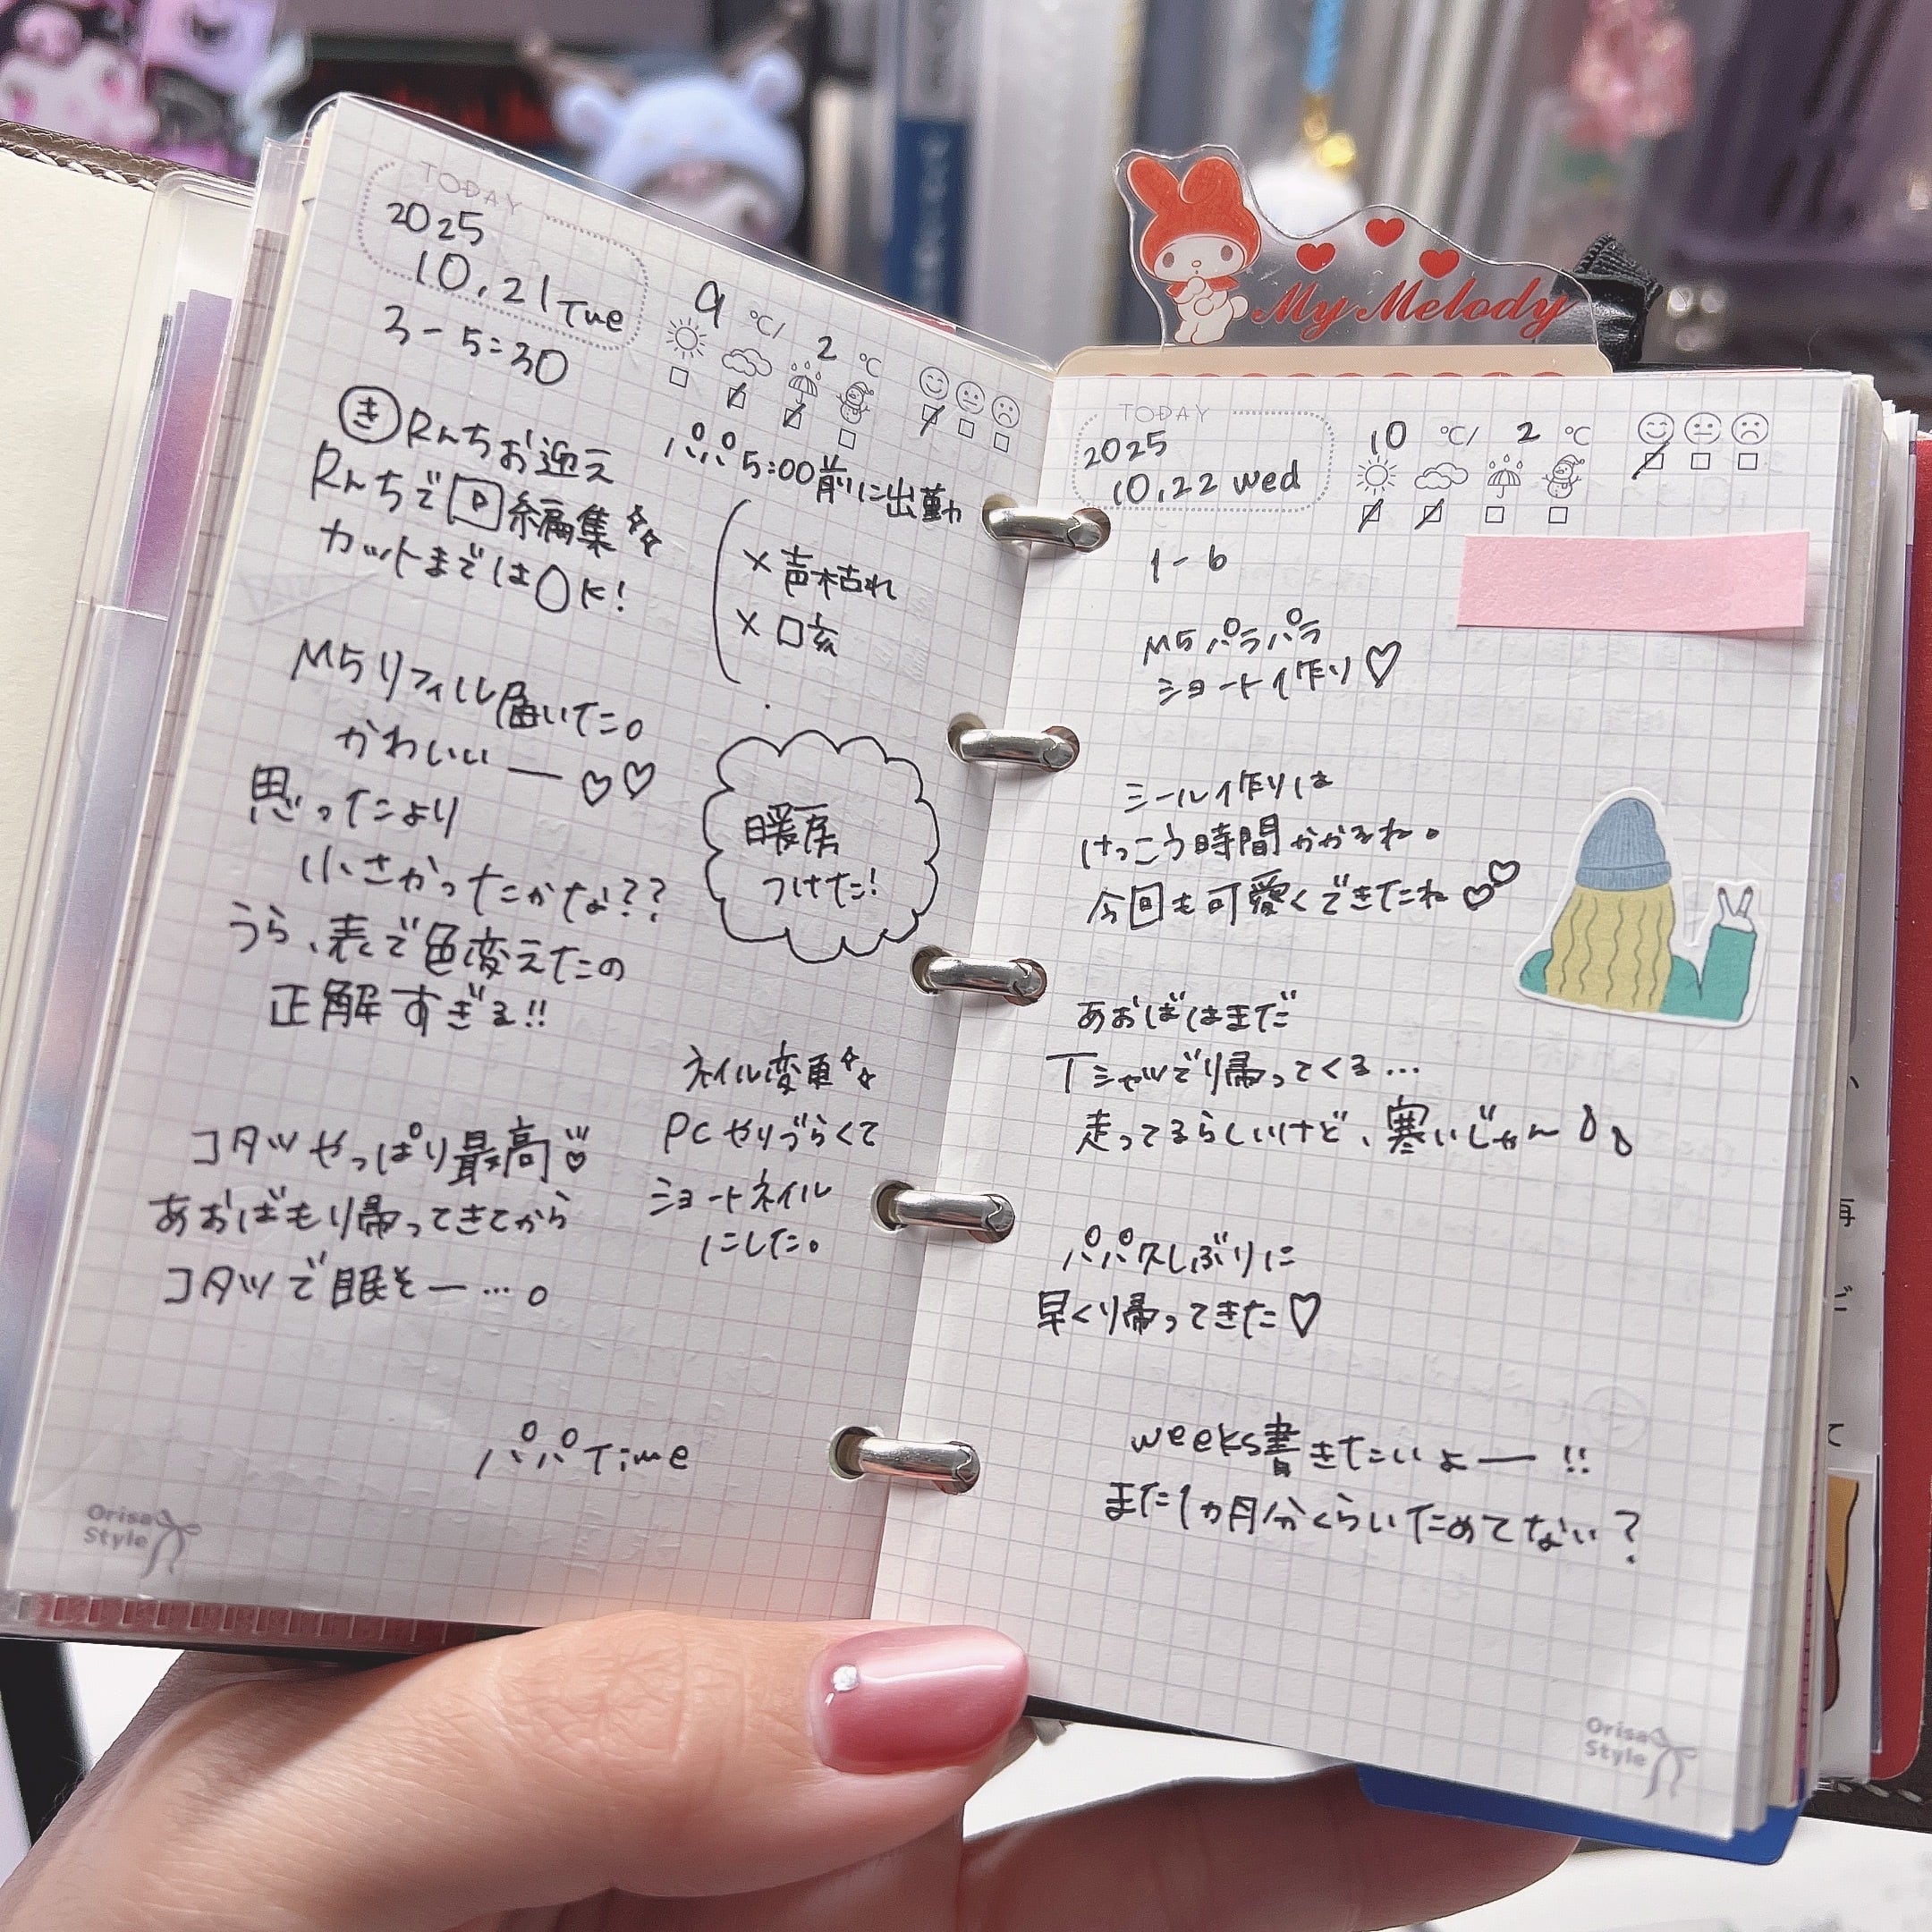 TODAY
2025
10,21 Tue
9 ℃/ 2 ℃
3-5:30
き Rんちお迎え
Rんちで 編集
カットまではOK!
パパ5:00前に出勤
×声枯れ
×口
M5リフィル届いた。
かわいいー♡♡
思ったより
小さかったかな??
うら、表で色変えたの
正解すぎる!!
暖房
つけた!
ネイル変更
PCやりづらくて
ショートネイル
にした。
コタツやっぱり最高
あおばもり帰ってきてから
コタツで眠そー…。
パパTime
Orisa
Style
My Melody
TODAY
2025
10,22 wed
10 ℃/ 2 ℃
1-6
M5パラパラ
ショート作り♡
シール作りは
けっこう時間かかるね。
今回も可愛くできたね♡♡
あおばはまだ
Tシャツでり帰ってくる…
走ってるらしいけど、寒いじゃん
パパ久しぶりに
早くり帰ってきた♡
weeks書きたいよー!!
また1ヵ月分くらいためてない?
Orisa
Style